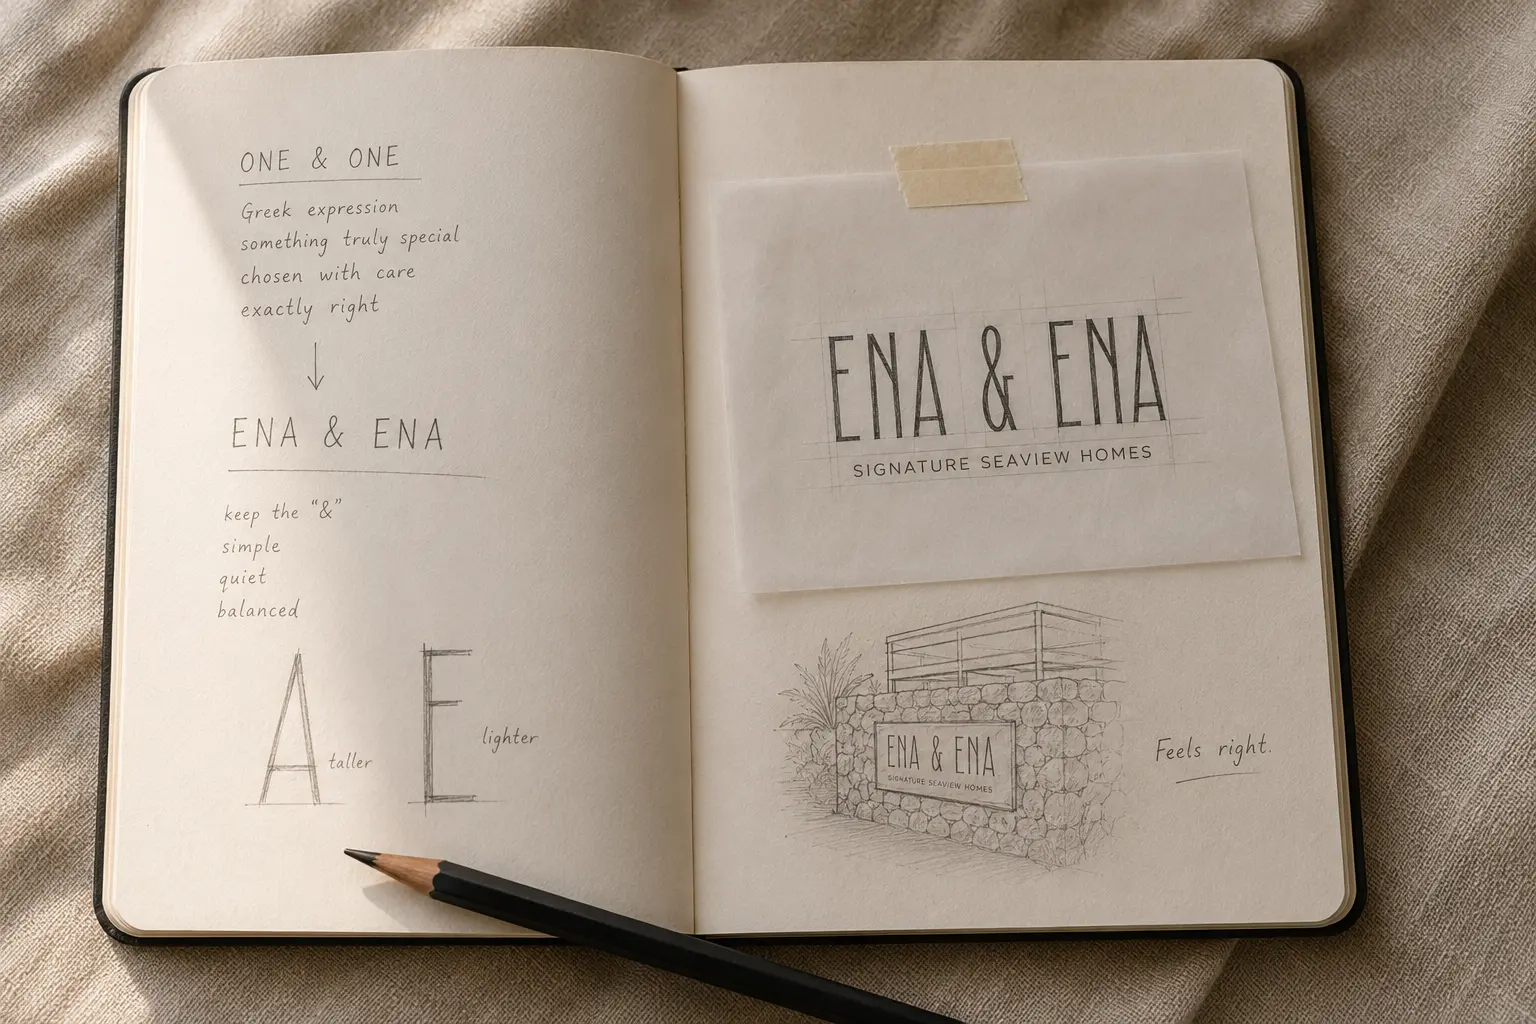 ONE & ONE
Greek expression
something truly special
chosen with care
exactly right
ENA & ENA
keep the “&”
simple
quiet
balanced
A
taller
E
lighter
ENA & ENA
SIGNATURE SEAVIEW HOMES
ENA & ENA
SIGNATURE SEAVIEW HOMES
Feels right.